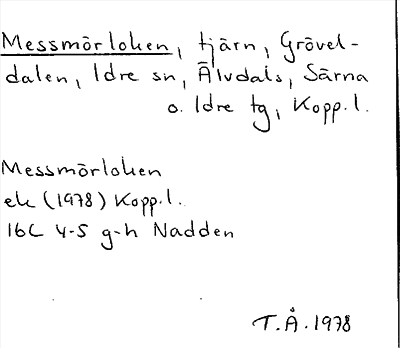 Messmörloken, tjärn, Grövel-
dalen, Idre sn, Älvdals, Särna
o. Idre tg, Kopp. l.
Messmörloken
ek (1978) Kopp. l.
16C 4-5 g-h Nadden
T.Å. 1978